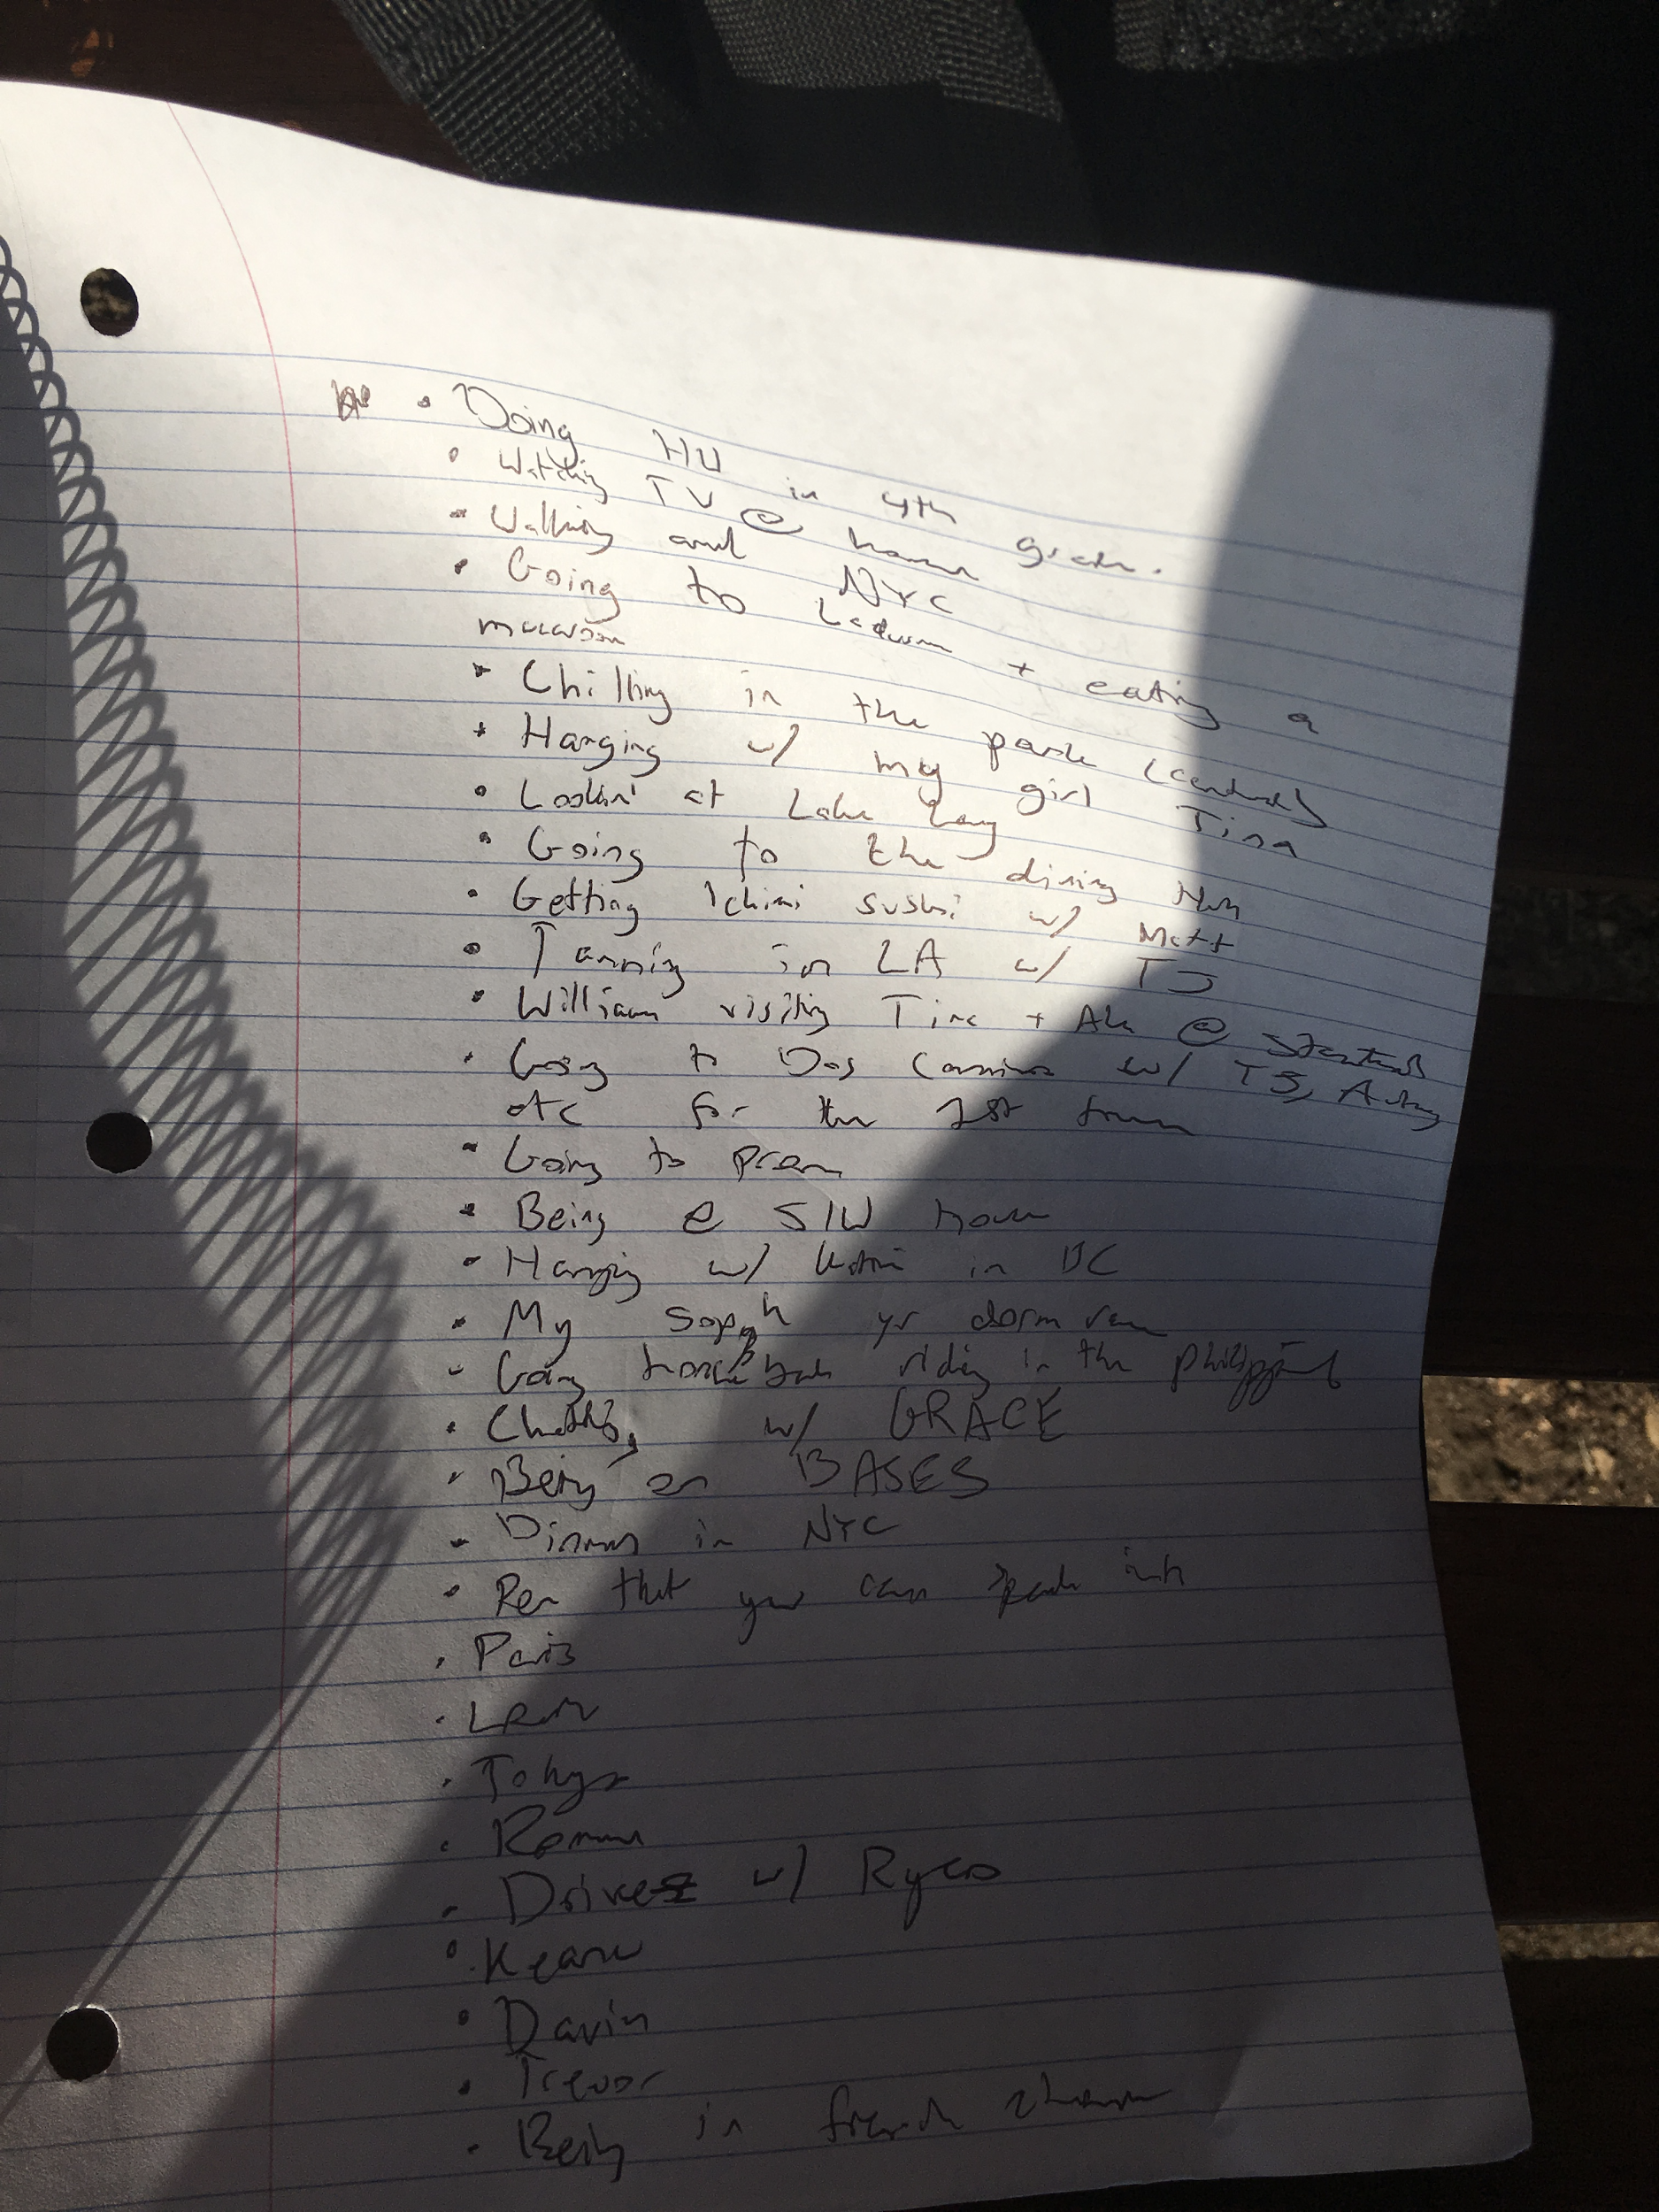 • Doing HW in 4th grade.
• Watching TV @ home
• Walking around NYC
• Going to Laduree + eating a
macaron
• Chilling in the park (central)
• Hanging w/ my girl Tina
• Lookin' at Lake Lag
• Going to the dining
• Getting Ichimi sushi w/ Matt
• Tanning in LA w/ TJ
• William visiting Tina + Alex @ Stanford
• Going to Dos Caminos w/ TJ,
etc for the 1st time
• Going to prom
• Being @ SIW house
• Hanging w/ in DC
• My soph yr dorm room
• Going horseback riding in the philippines
• Chatting w/ GRACE
• Being on BASES
• Dinner in NYC
• Pen that you can speak into
• Paris
•
• Tokyo
• Rome
• Drive w/ Ryan
• Keanu
• Davin
• Trevor
• Being in french